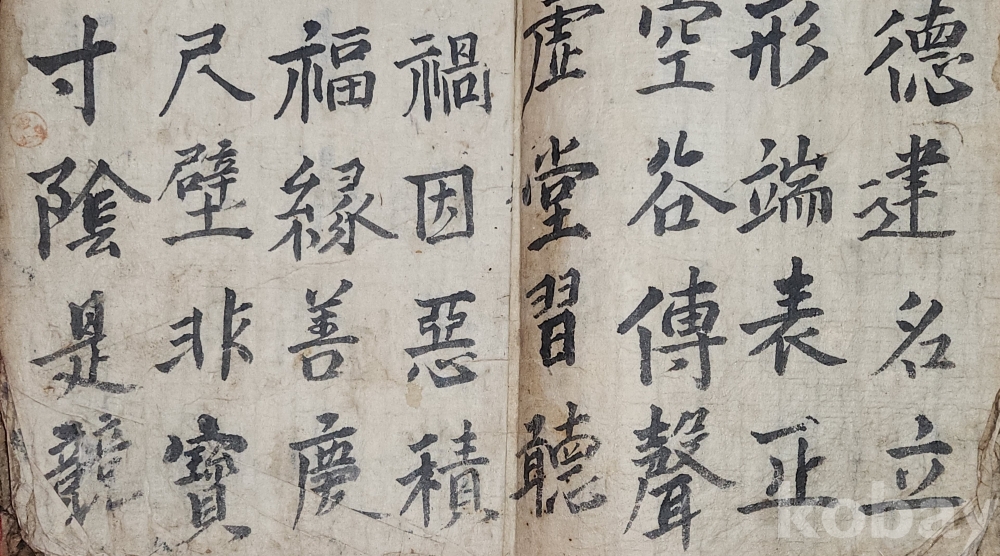 德建名立
形端表正
空谷傳聲
虛堂習聽
禍因惡積
福緣善慶
尺璧非寶
寸陰是競
kobay